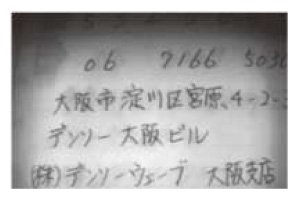 06 7166 503
大阪市淀川区宮原4-2-
デンソー大阪ビル
(株)デンソーウェーブ 大阪支店